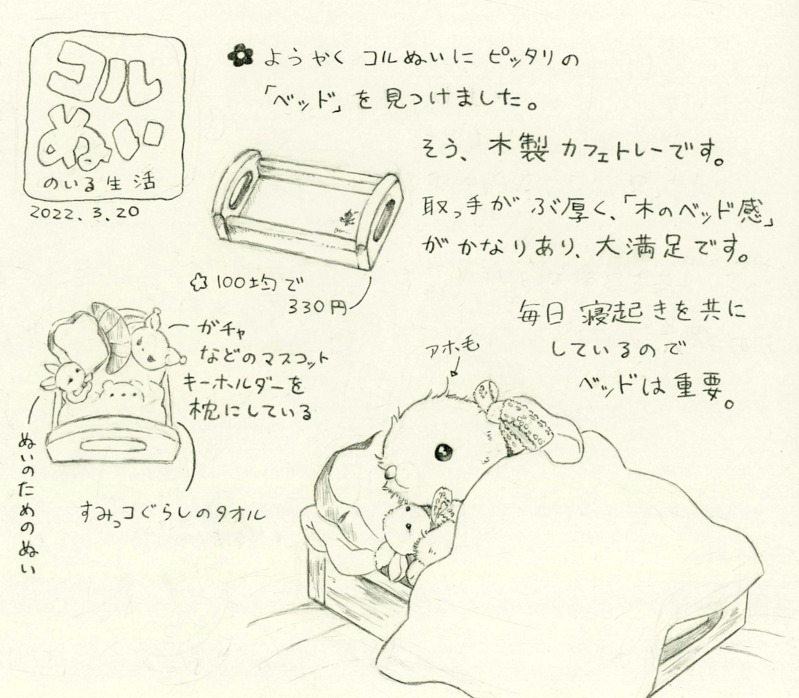 コル
ぬい
のいる生活
2022.3.20
ようやく コルぬいに ピッタリの
「ベッド」を見つけました。
そう、木製カフェトレーです。
取っ手が ぶ厚く、「木のベッド感」
がかなりあり、大満足です。
100均で
330円
毎日 寝起きを共に
しているので
ベッドは重要。
ガチャ
などのマスコット
キーホルダーを
枕にしている
アホ毛
ぬいのためのぬい
すみっコぐらしのタオル